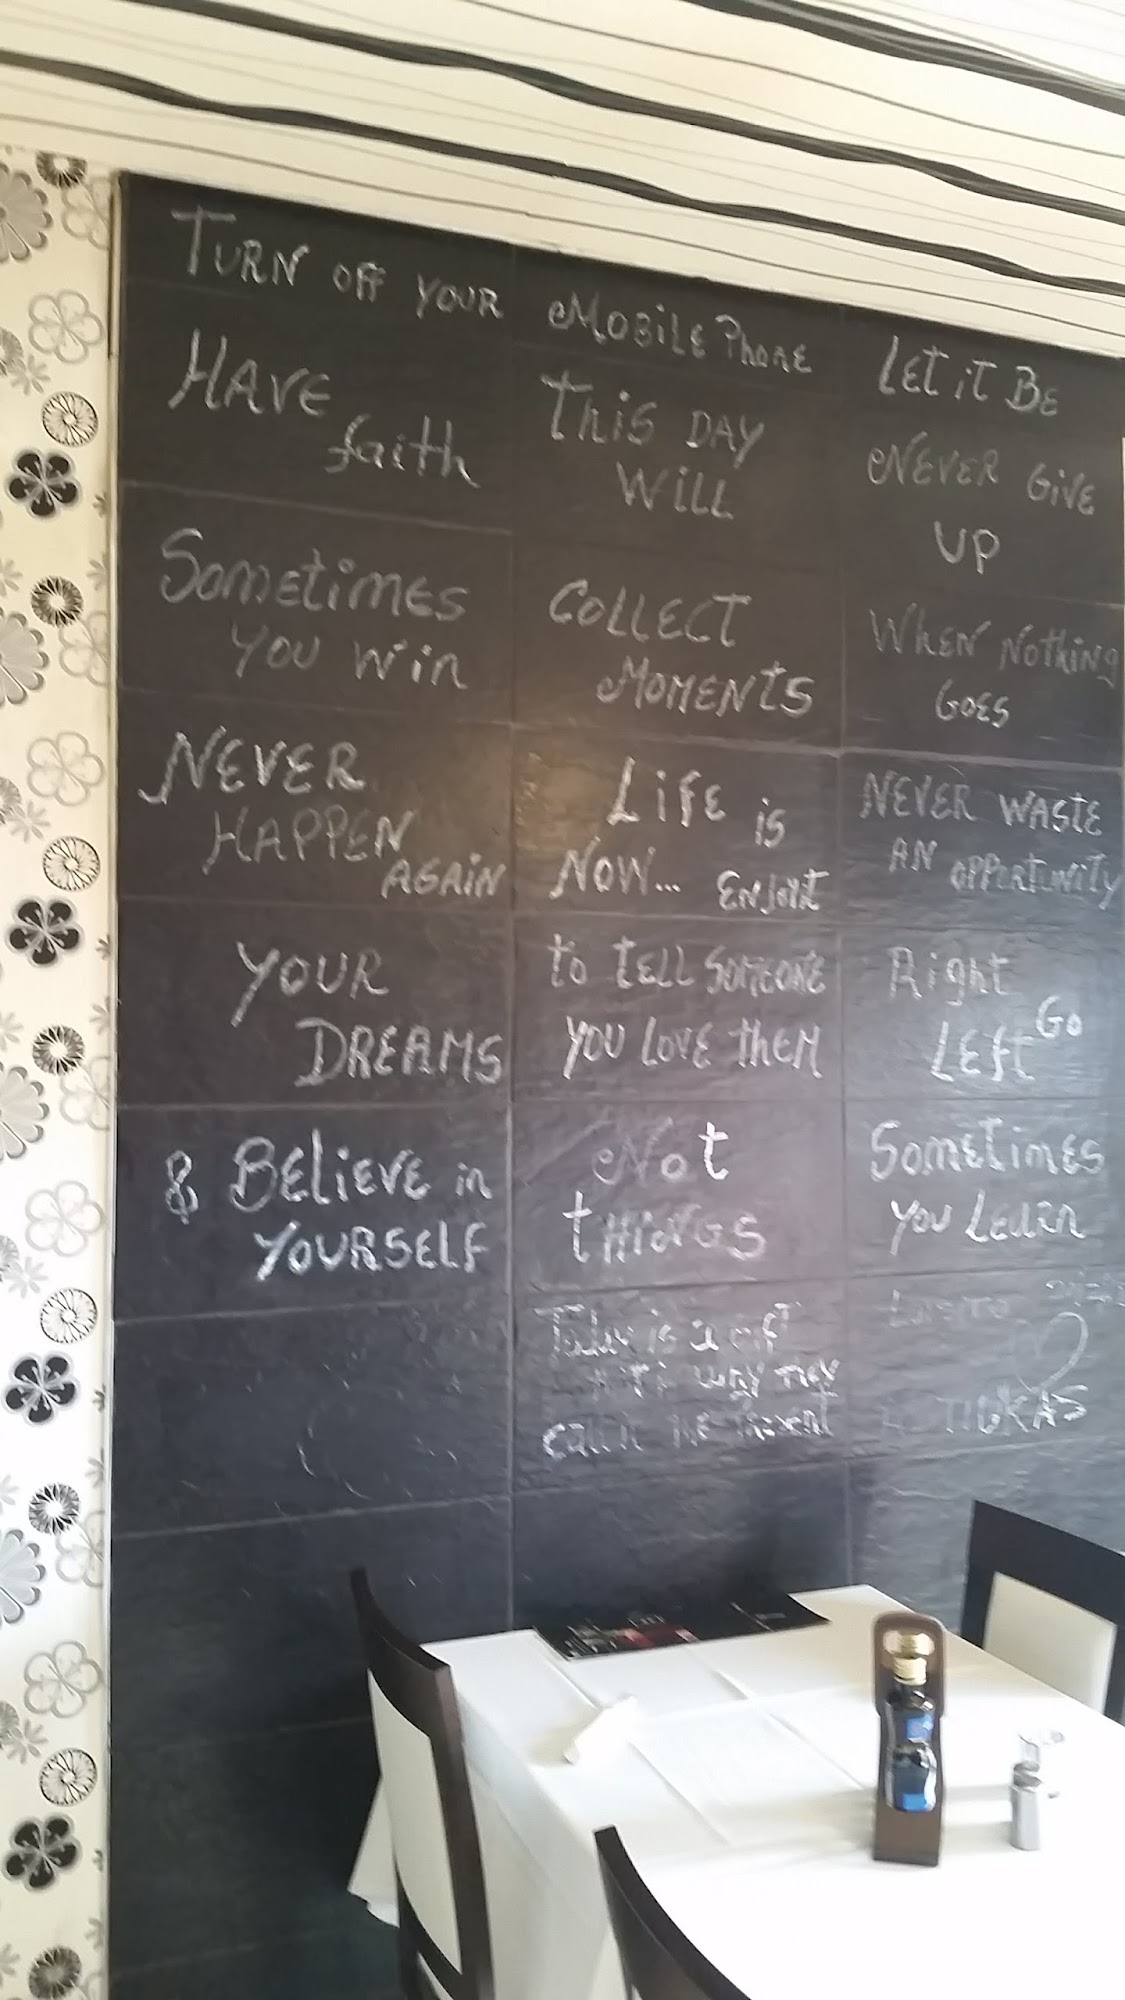 TURN OFF YOUR MOBILE PHONE
LET iT BE
HAVE
faith
This DAY
WiLL
NEVER GiVE
UP
Sometimes
YOU Win
COLLECT
MOMENtS
WHEN NOthing
GOES
NEVER
HAPPEN
AGAiN
LiFE is
NOW... ENJOYit
NEVER WASTE
AN OPPORTUNITY
YOUR
DREAMS
to tELL SOMEONE
YOU LOVE tHEM
Right
LEft GO
& BEliEVE in
YOURSELF
Not
tHiNGS
SOMEtiMES
YOU LEARN
Today is a gift
why
catch the